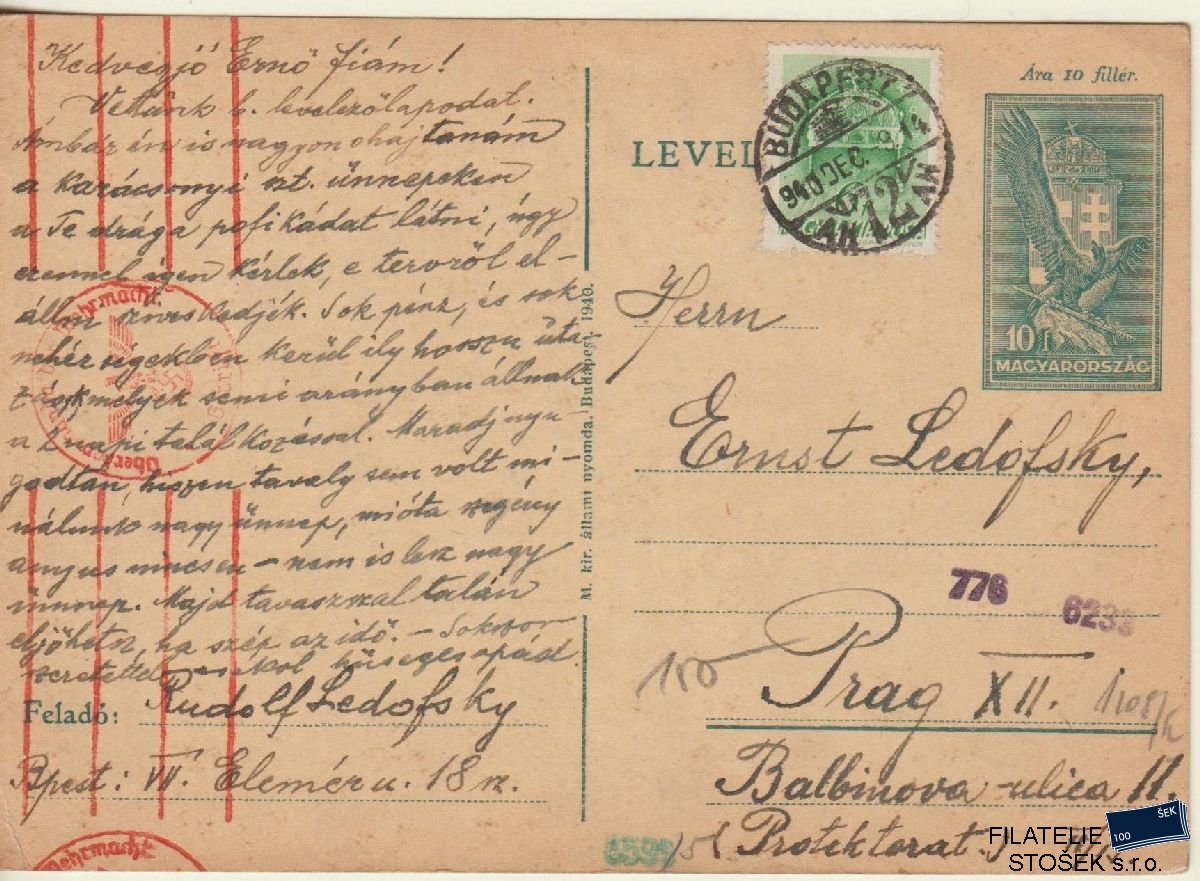 Kedvegjő Ernő fiám!
Vettünk b. levelezőlapodat.
Ámbár én is nagyon óhajtanám
a karácsonyi szt. ünnepeken
a Te drága pofikádat látni, úgy
ezennel igen kérlek, e tervről el-
állni szíveskedjék. Sok pénz, és sok
nehézségekben kerül ily hosszu uta
zások melyek semi arányban állnak
a 2 napi találkozással. Maradj nyu-
godtan, hiszen tavaly sem volt mi-
nálunk nagy ünnep, mióta szegény
anyus nincsen – nem is lesz nagy
ünnep. Majd tavaszszal talán
eljöhetsz, ha szép az idő. – Sokszor
szeretettel csókol hűséges apád
Feladó: Rudolf Ledofsky
Bpest: VII. Elemér u. 18 sz.
M. kir. állami nyomda, Budapest 1940.
LEVEL
BUDAPEST
940 DEC.
Ára 10 fillér.
10 f
MAGYARORSZÁG
Herrn
Ernst Ledofsky,
776
623
150
Prag XII.
Balbinova-ulica 11.
Protektorat
Wehrmacht
Ober
Wehrmacht
100 ŠEK
FILATELIE
STOŠEK s.r.o.